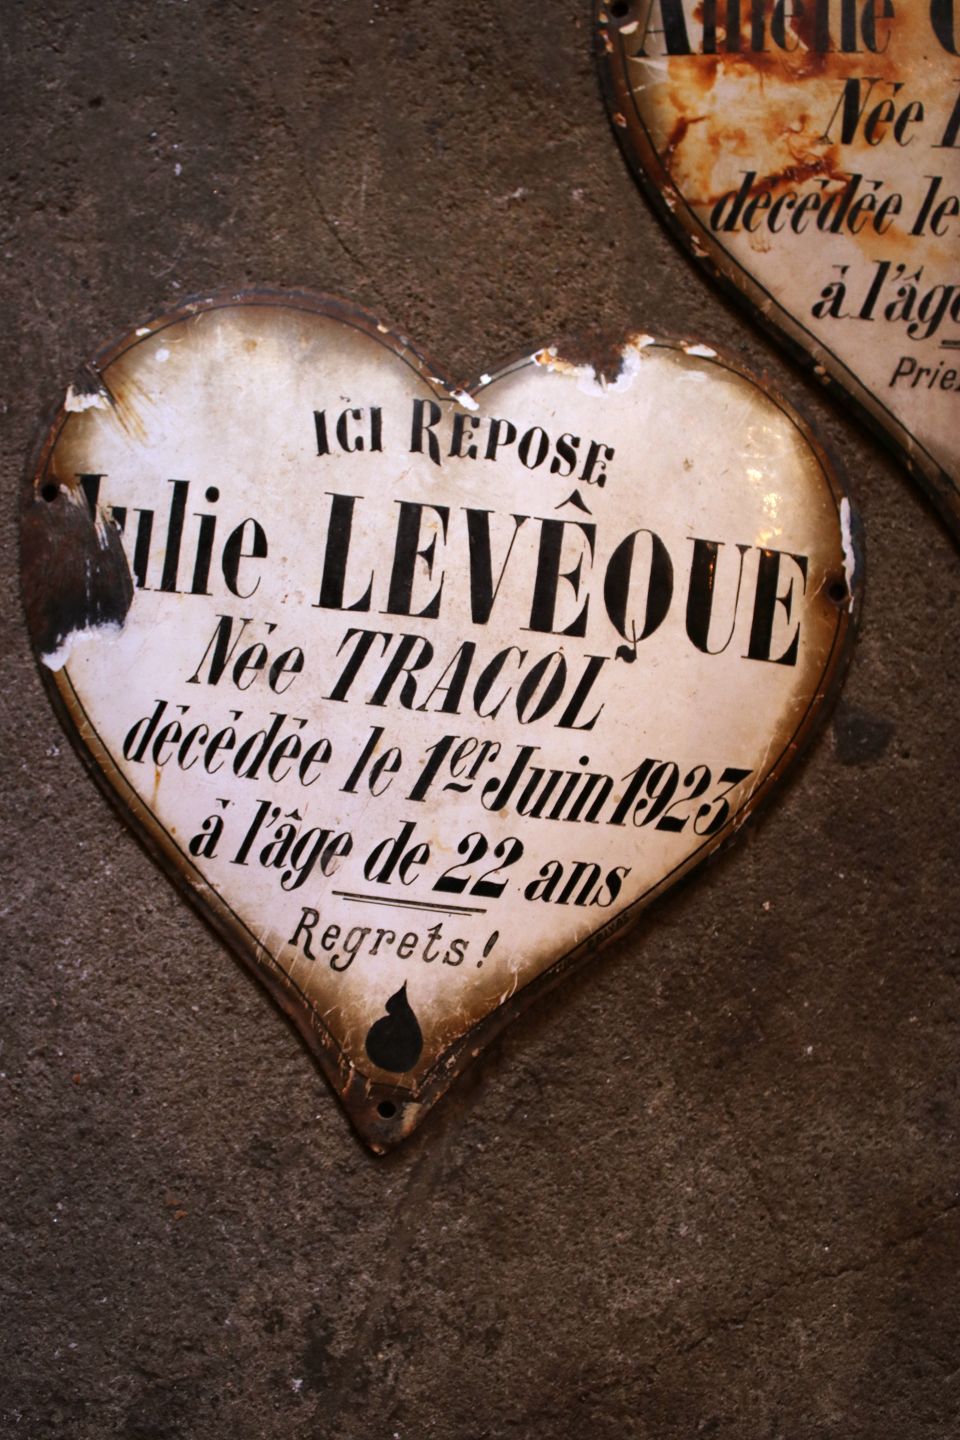 ICI REPOSE
Julie LEVÊQUE
Née TRACOL
décédée le 1er Juin 1923
à l'âge de 22 ans
Regrets !
Née
décédée le
à l'âge